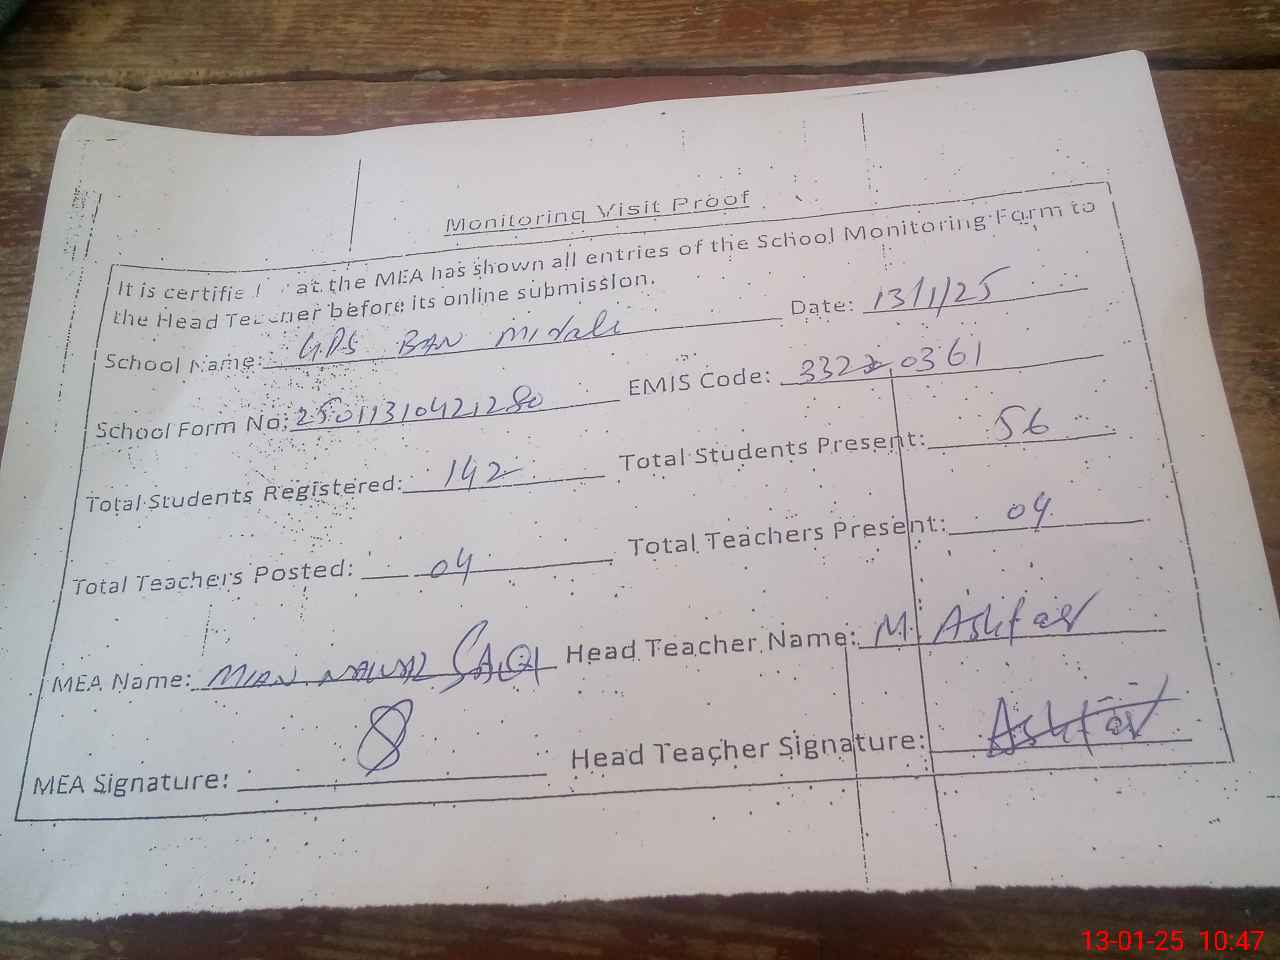 Monitoring Visit Proof
It is certifie at the MEA has shown all entries of the School Monitoring Form to
the Head Teacher before its online submission.
School Name: GPS BAN Date: 13/1/25
School Form No: 25011310421280 EMIS Code: 33220361
Total Students Registered: 142 Total Students Present: 56
Total Teachers Posted: 04 Total Teachers Present: 04
MEA Name: MIAN Head Teacher Name: M. Ashfaq
MEA Signature: Head Teacher Signature: Ashfaq
13-01-25 10:47